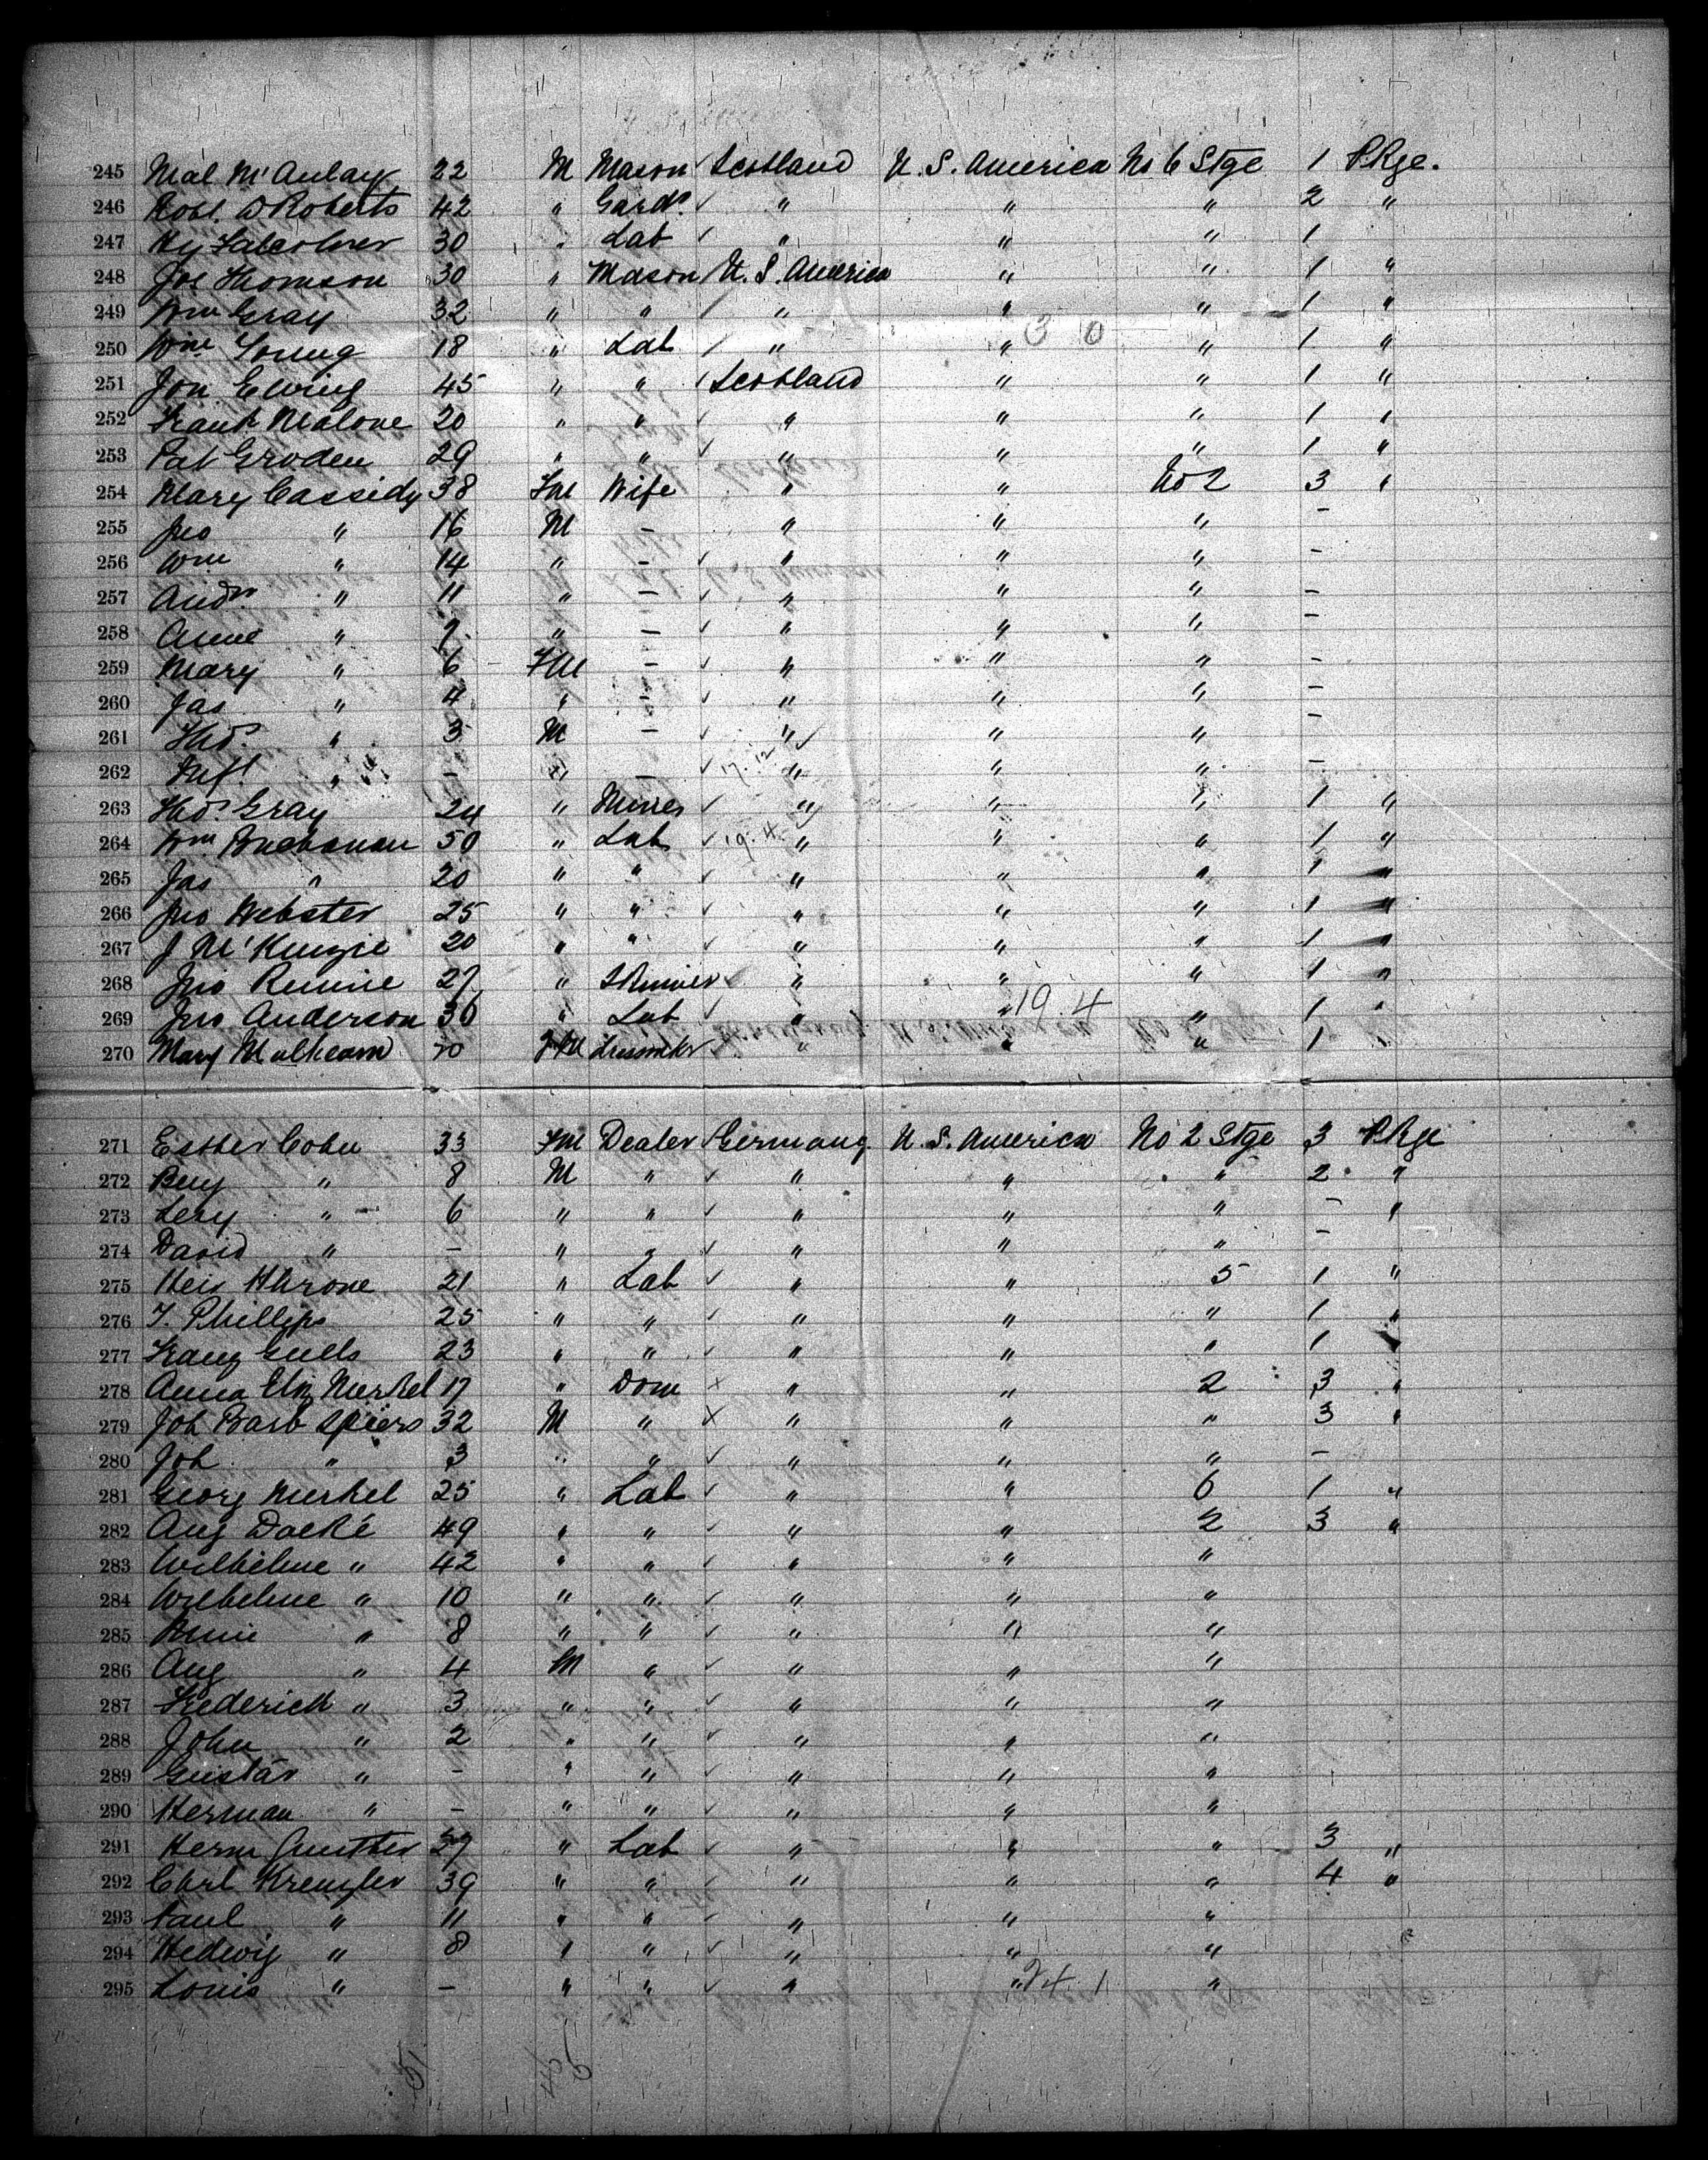 245 Mal McAulay 22 M Mason ✓ Scotland U.S. America No 6 Stge 1 Pkge.
246 Robt. D Roberts 42 " Gardr. ✓ " " " 2 "
247 Hy 30 " Lab ✓ " " " 1
248 Jos Thomson 30 " Mason / U.S. America " " 1 "
249 Wm Gray 32 " " / " " " 1 "
250 Wm Young 18 " Lab / " " 3 0 " 1 "
251 Jon Ewing 45 " " / Scotland " " 1 "
252 Frank Malone 20 " " ✓ " " " 1 "
253 Pat Groden 29 " " ✓ " " " 1 "
254 Mary Cassidy 38 Fm Wife " " No 2 3 "
255 Jno " 16 M - " " " -
256 Wm " 14 " - ✓ " " " -
257 Andr " 11 " - ✓ " " " -
258 Anne " 7 " - ✓ " " " -
259 Mary " 6 - FM - ✓ " " " -
260 Jas " 4 " - ✓ " " " -
261 Thos. " 3 M - ✓ " ✓ " " -
262 Inft " - " - ✓ 17.12 " " " -
263 Thos. Gray 24 " Miner ✓ " " " 1 "
264 Wm Buchanan 50 " Lab ✓ 19.4 " " " 1 "
265 Jas " 20 " " ✓ " " 1 "
266 Jno Webster 25 " " ✓ " " " 1 "
267 J McKenzie 20 " " ✓ " " " 1 "
268 Jno Rennie 27 " ✓ " " " 1 "
269 Jno Anderson 36 " Lab ✓ " " 19.4 " 1 "
270 Mary 20 FM Dressmkr ✓ " " " 1
271 Esther Cohn 33 Fm Dealer ✓ Germany U.S. America No 2 Stge 3 Pkge
272 " 8 M " ✓ " " " 2 "
273 " - 6 " " ✓ " " " - "
274 David " - " " ✓ " " " -
275 21 " Lab ✓ " " 5 1 "
276 Phillips 25 " " ✓ " " " 1 "
277 Franz 23 " " ✓ " " " 1 "
278 Anna Eliz Merkel 17 " Dom × " " 2 3 "
279 Joh Barb Spiers 32 M " × " " " 3 "
280 Joh " 3 " " ✓ " " " -
281 Georg Merkel 25 " Lab ✓ " " 6 1 "
282 Aug 49 " " ✓ " " 2 3 "
283 Wilhelme " 42 " " ✓ " " "
284 Wilhelme " 10 " " ✓ " " "
285 " 8 " " ✓ " " "
286 Aug " 4 M " ✓ " " "
287 Frederick " 3 " " ✓ " " "
288 John " 2 " " ✓ " " "
289 Gustav " - " " " " "
290 Herman " - " " ✓ " " "
291 Herm Gunther 27 " Lab ✓ " " " 3 "
292 Karl Krenzler 39 " " ✓ " " " 4 "
293 Paul " 11 " " ✓ " " "
294 Hedwig " 8 " " ✓ " " "
295 Louis " - " " ✓ " " 24 1 "